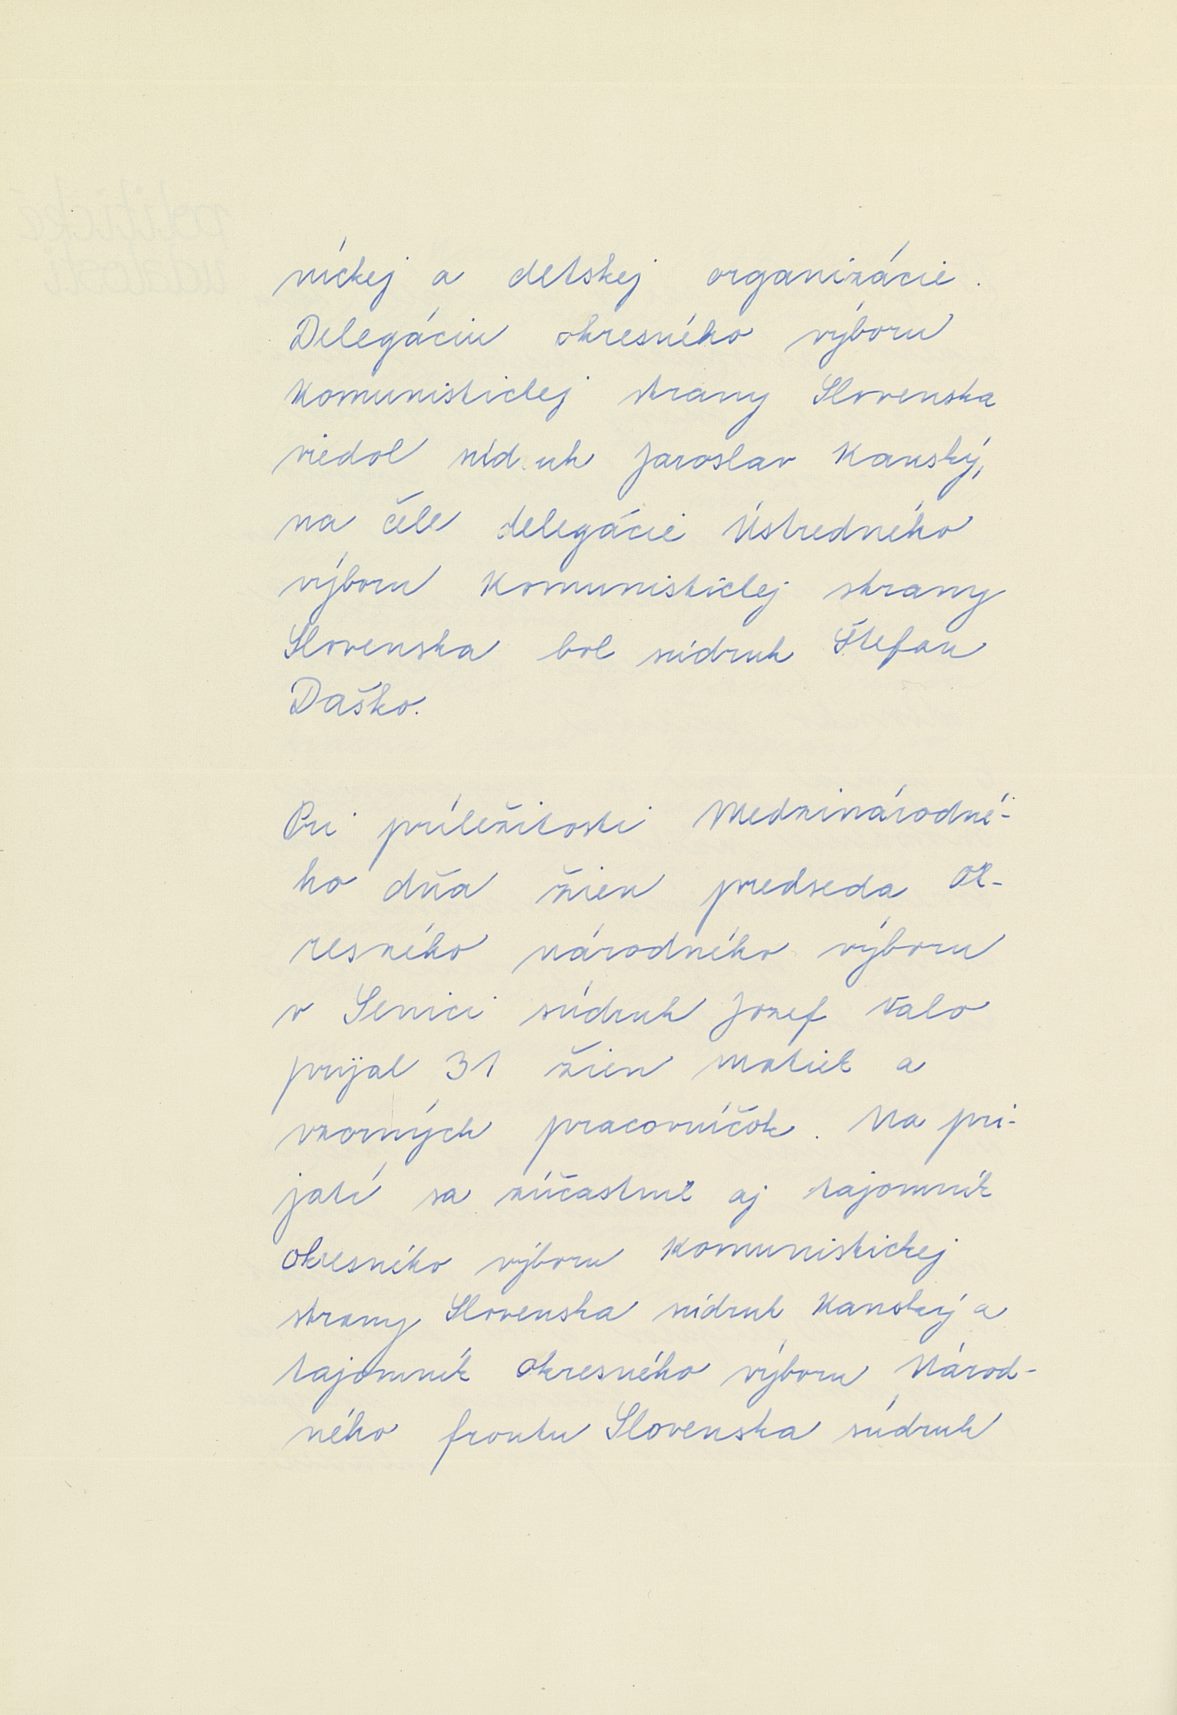 níckej a detskej organizácie.
Delegáciu okresného výboru
Komunistickej strany Slovenska
viedol súdruh Jaroslav Kanský,
na čele delegácie Ústredného
výboru Komunistickej strany
Slovenska bol súdruh Štefan
Daško.
Pri príležitosti Medzinárodné-
ho dňa žien predseda ok-
resného národného výboru
v Senici súdruh Jozef Valo
prijal 31 žien matiek a
vzorných pracovníčok. Na pri-
jatí sa zúčastnil aj tajomník
okresného výboru Komunistickej
strany Slovenska súdruh Kanský a
tajomník okresného výboru Národ-
ného frontu Slovenska súdruh